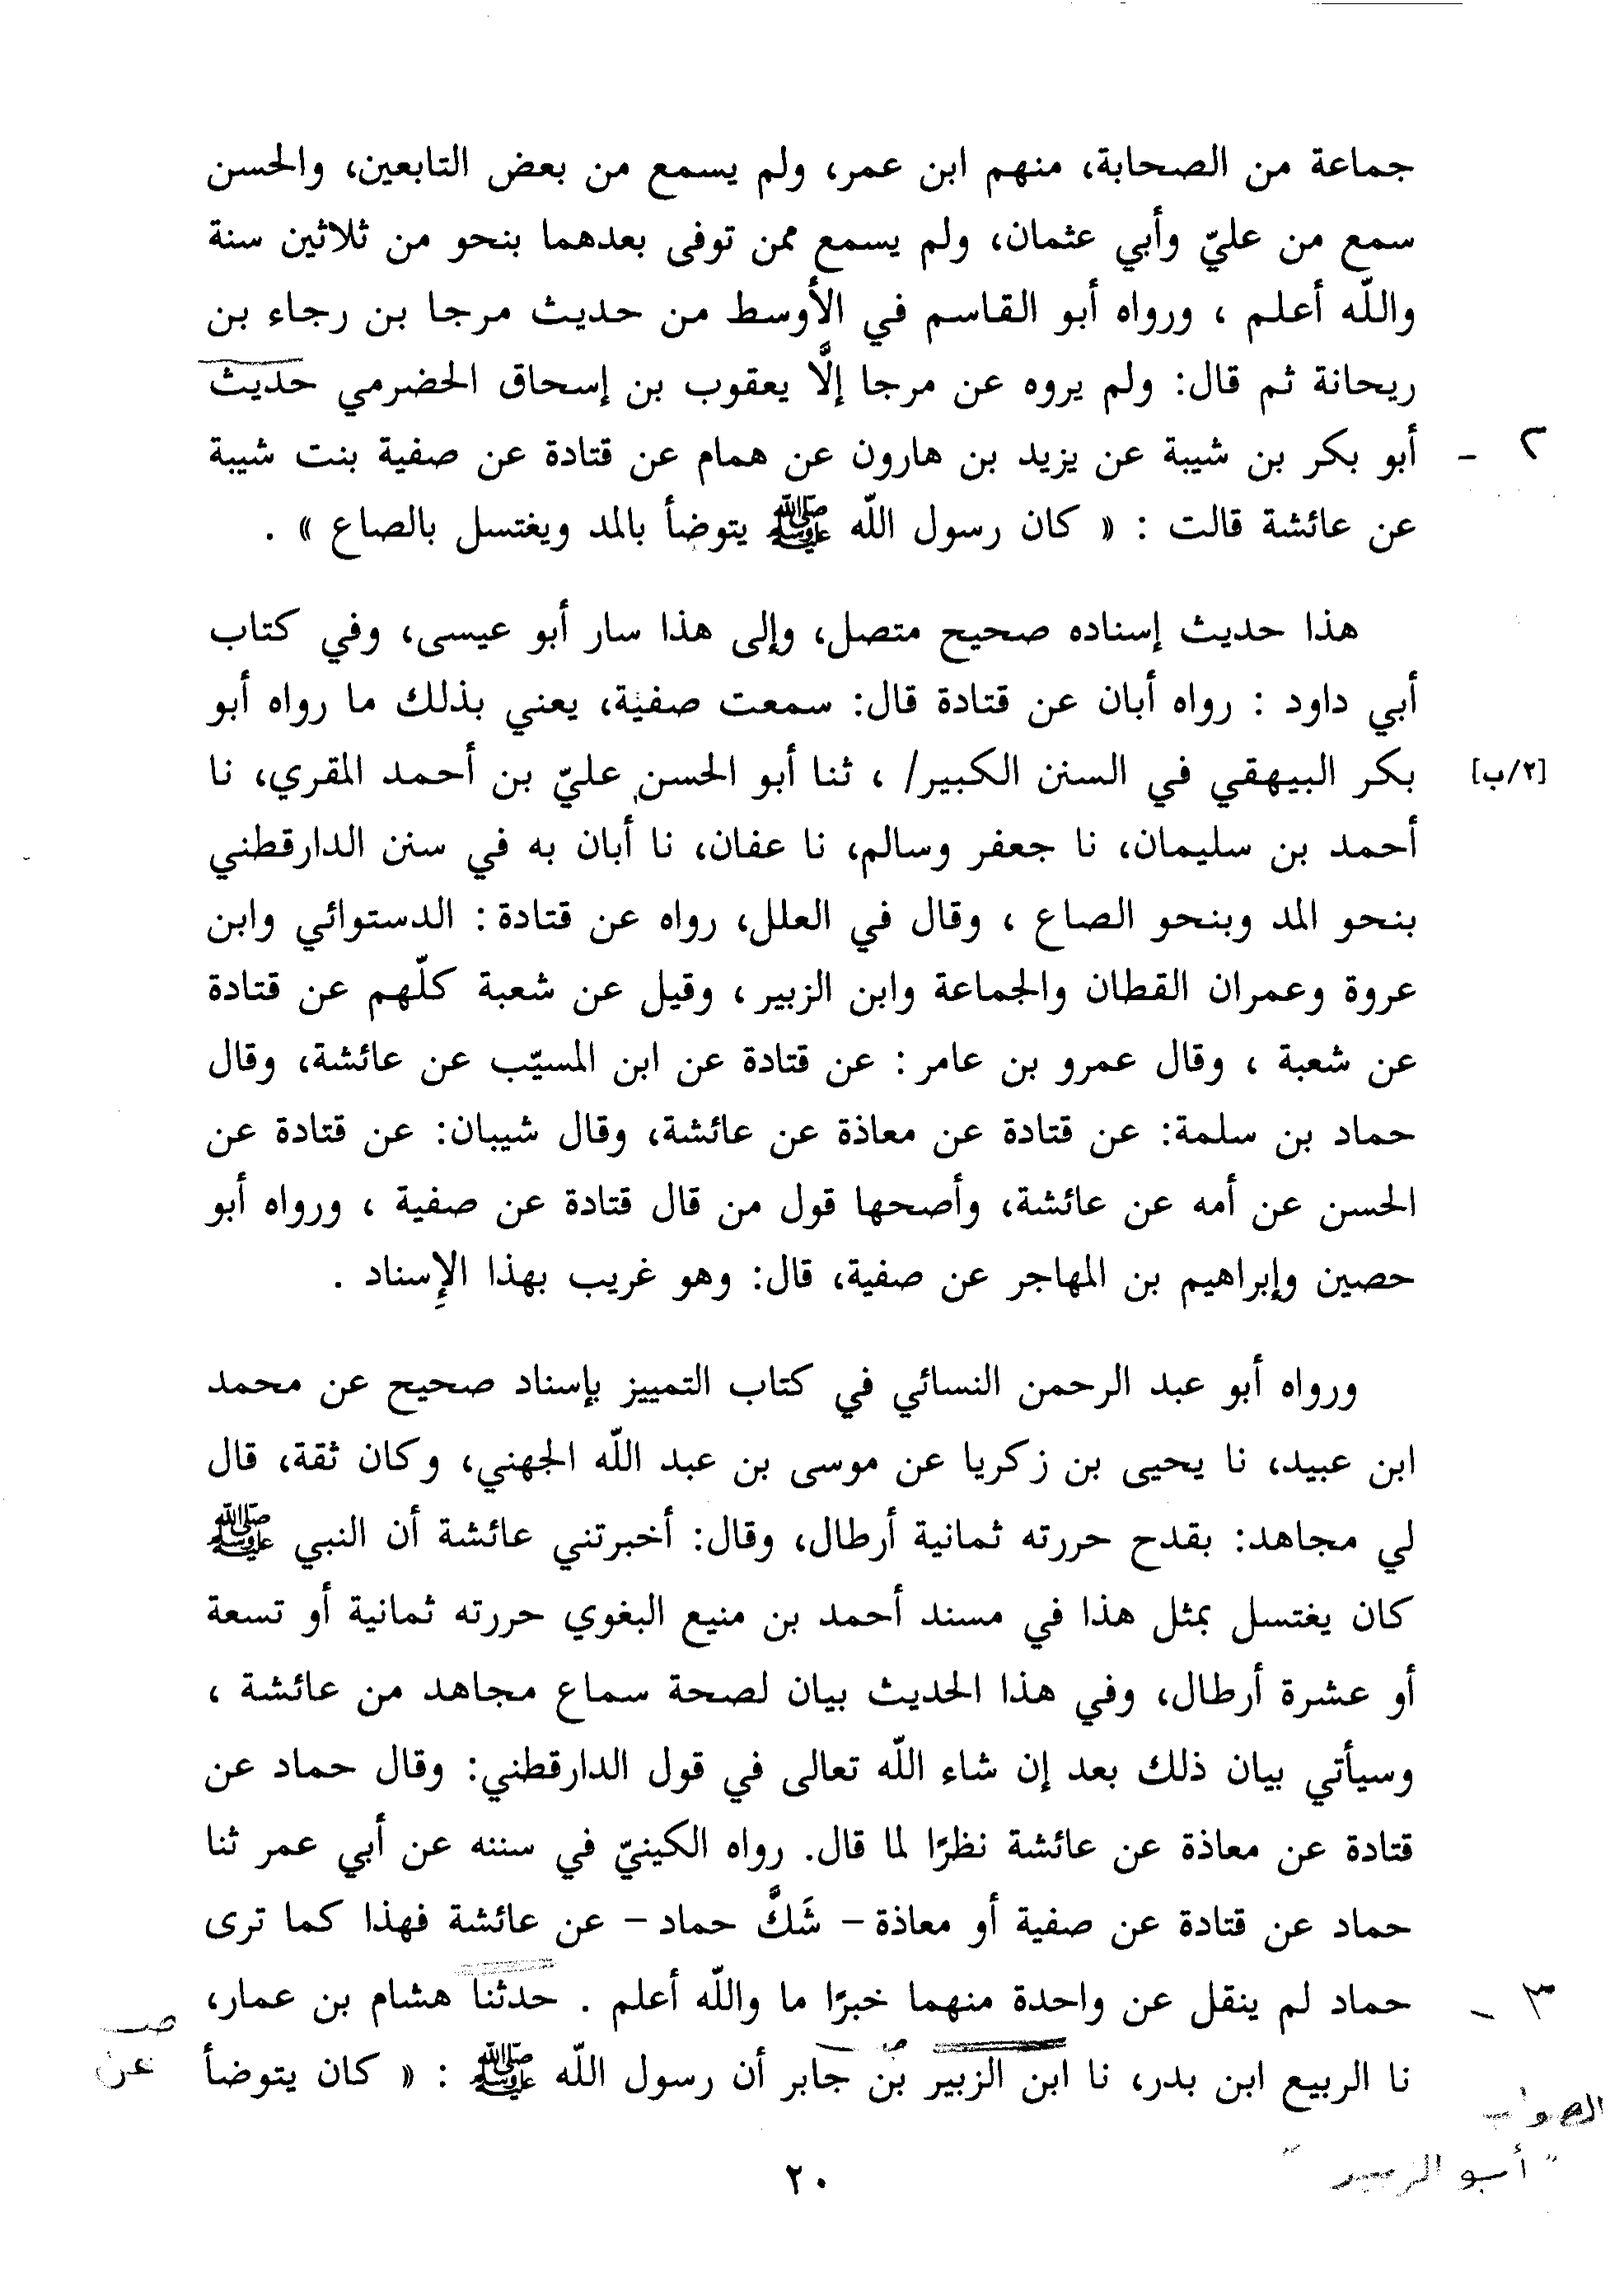 جماعة من الصحابة، منهم ابن عمر، ولم يسمع من بعض التابعين، والحسن
سمع من عليّ وأبي عثمان، ولم يسمع ممن توفى بعدهما بنحو من ثلاثين سنة
واللّه أعلم ، ورواه أبو القاسم في الأوسط من حديث مرجا بن رجاء بن
ريحانة ثم قال: ولم يروه عن مرجا إلَّا يعقوب بن إسحاق الحضرمي حديث
٢ - أبو بكر بن شيبة عن يزيد بن هارون عن همام عن قتادة عن صفية بنت شيبة
عن عائشة قالت : « كان رسول اللّه ﷺ يتوضأ بالمد ويغتسل بالصاع » .
هذا حديث إسناده صحيح متصل، وإلى هذا سار أبو عيسى، وفي كتاب
أبي داود : رواه أبان عن قتادة قال: سمعت صفية، يعني بذلك ما رواه أبو
[٢/ب] بكر البيهقي في السنن الكبير/ ، ثنا أبو الحسن عليّ بن أحمد المقري، نا
أحمد بن سليمان، نا جعفر وسالم، نا عفان، نا أبان به في سنن الدارقطني
بنحو المد وبنحو الصاع ، وقال في العلل، رواه عن قتادة : الدستوائي وابن
عروة وعمران القطان والجماعة وابن الزبير ، وقيل عن شعبة كلّهم عن قتادة
عن شعبة ، وقال عمرو بن عامر : عن قتادة عن ابن المسيّب عن عائشة، وقال
حماد بن سلمة: عن قتادة عن معاذة عن عائشة، وقال شيبان: عن قتادة عن
الحسن عن أمه عن عائشة، وأصحها قول من قال قتادة عن صفية ، ورواه أبو
حصين وإبراهيم بن المهاجر عن صفية، قال: وهو غريب بهذا الإِسناد .
ورواه أبو عبد الرحمن النسائي في كتاب التمييز بإسناد صحيح عن محمد
ابن عبيد، نا يحيى بن زكريا عن موسى بن عبد اللّه الجهني، وكان ثقة، قال
لي مجاهد: بقدح حررته ثمانية أرطال، وقال: أخبرتني عائشة أن النبي ﷺ
كان يغتسل بمثل هذا في مسند أحمد بن منيع البغوي حررته ثمانية أو تسعة
أو عشرة أرطال، وفي هذا الحديث بيان لصحة سماع مجاهد من عائشة ،
وسيأتي بيان ذلك بعد إن شاء اللّه تعالى في قول الدارقطني: وقال حماد عن
قتادة عن معاذة عن عائشة نظرًا لما قال. رواه الكينيّ في سننه عن أبي عمر ثنا
حماد عن قتادة عن صفية أو معاذة - شَكَّ حماد - عن عائشة فهذا كما ترى
٣ - حماد لم ينقل عن واحدة منهما خبرًا ما واللّه أعلم . حدثنا هشام بن عمار،
نا الربيع ابن بدر، نا ابن الزبير بن جابر أن رسول اللّه ﷺ : « كان يتوضأ
صـ
عن
الصواب
"أبو الزبير"
٢٠